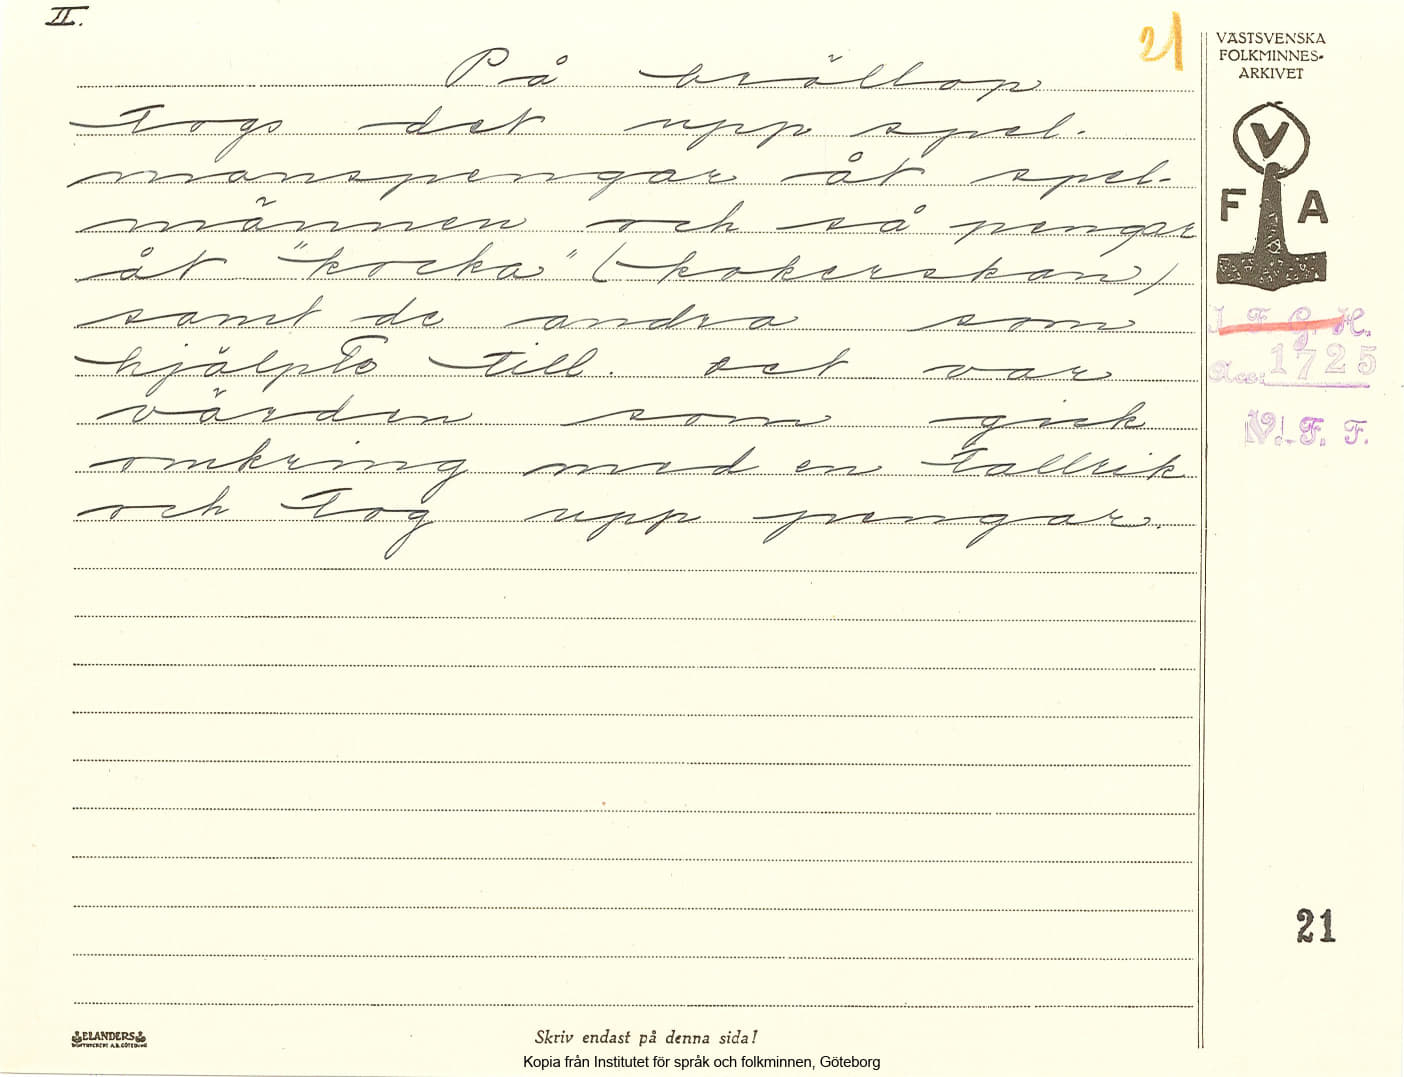 II.
21
På bröllop
togs det upp spel-
manspengar åt spel-
männen och så pengar
åt "kocka" (kokerskan)
samt de andra som
hjälpte till. Det var
värden som gick
omkring med en tallrik
och tog upp pengar.
VÄSTSVENSKA
FOLKMINNES-
ARKIVET
V
F A
I. F. G. H.
Acc: 1725
V. F. F.
21
ELANDERS
Skriv endast på denna sida!
Kopia från Institutet för språk och folkminnen, Göteborg